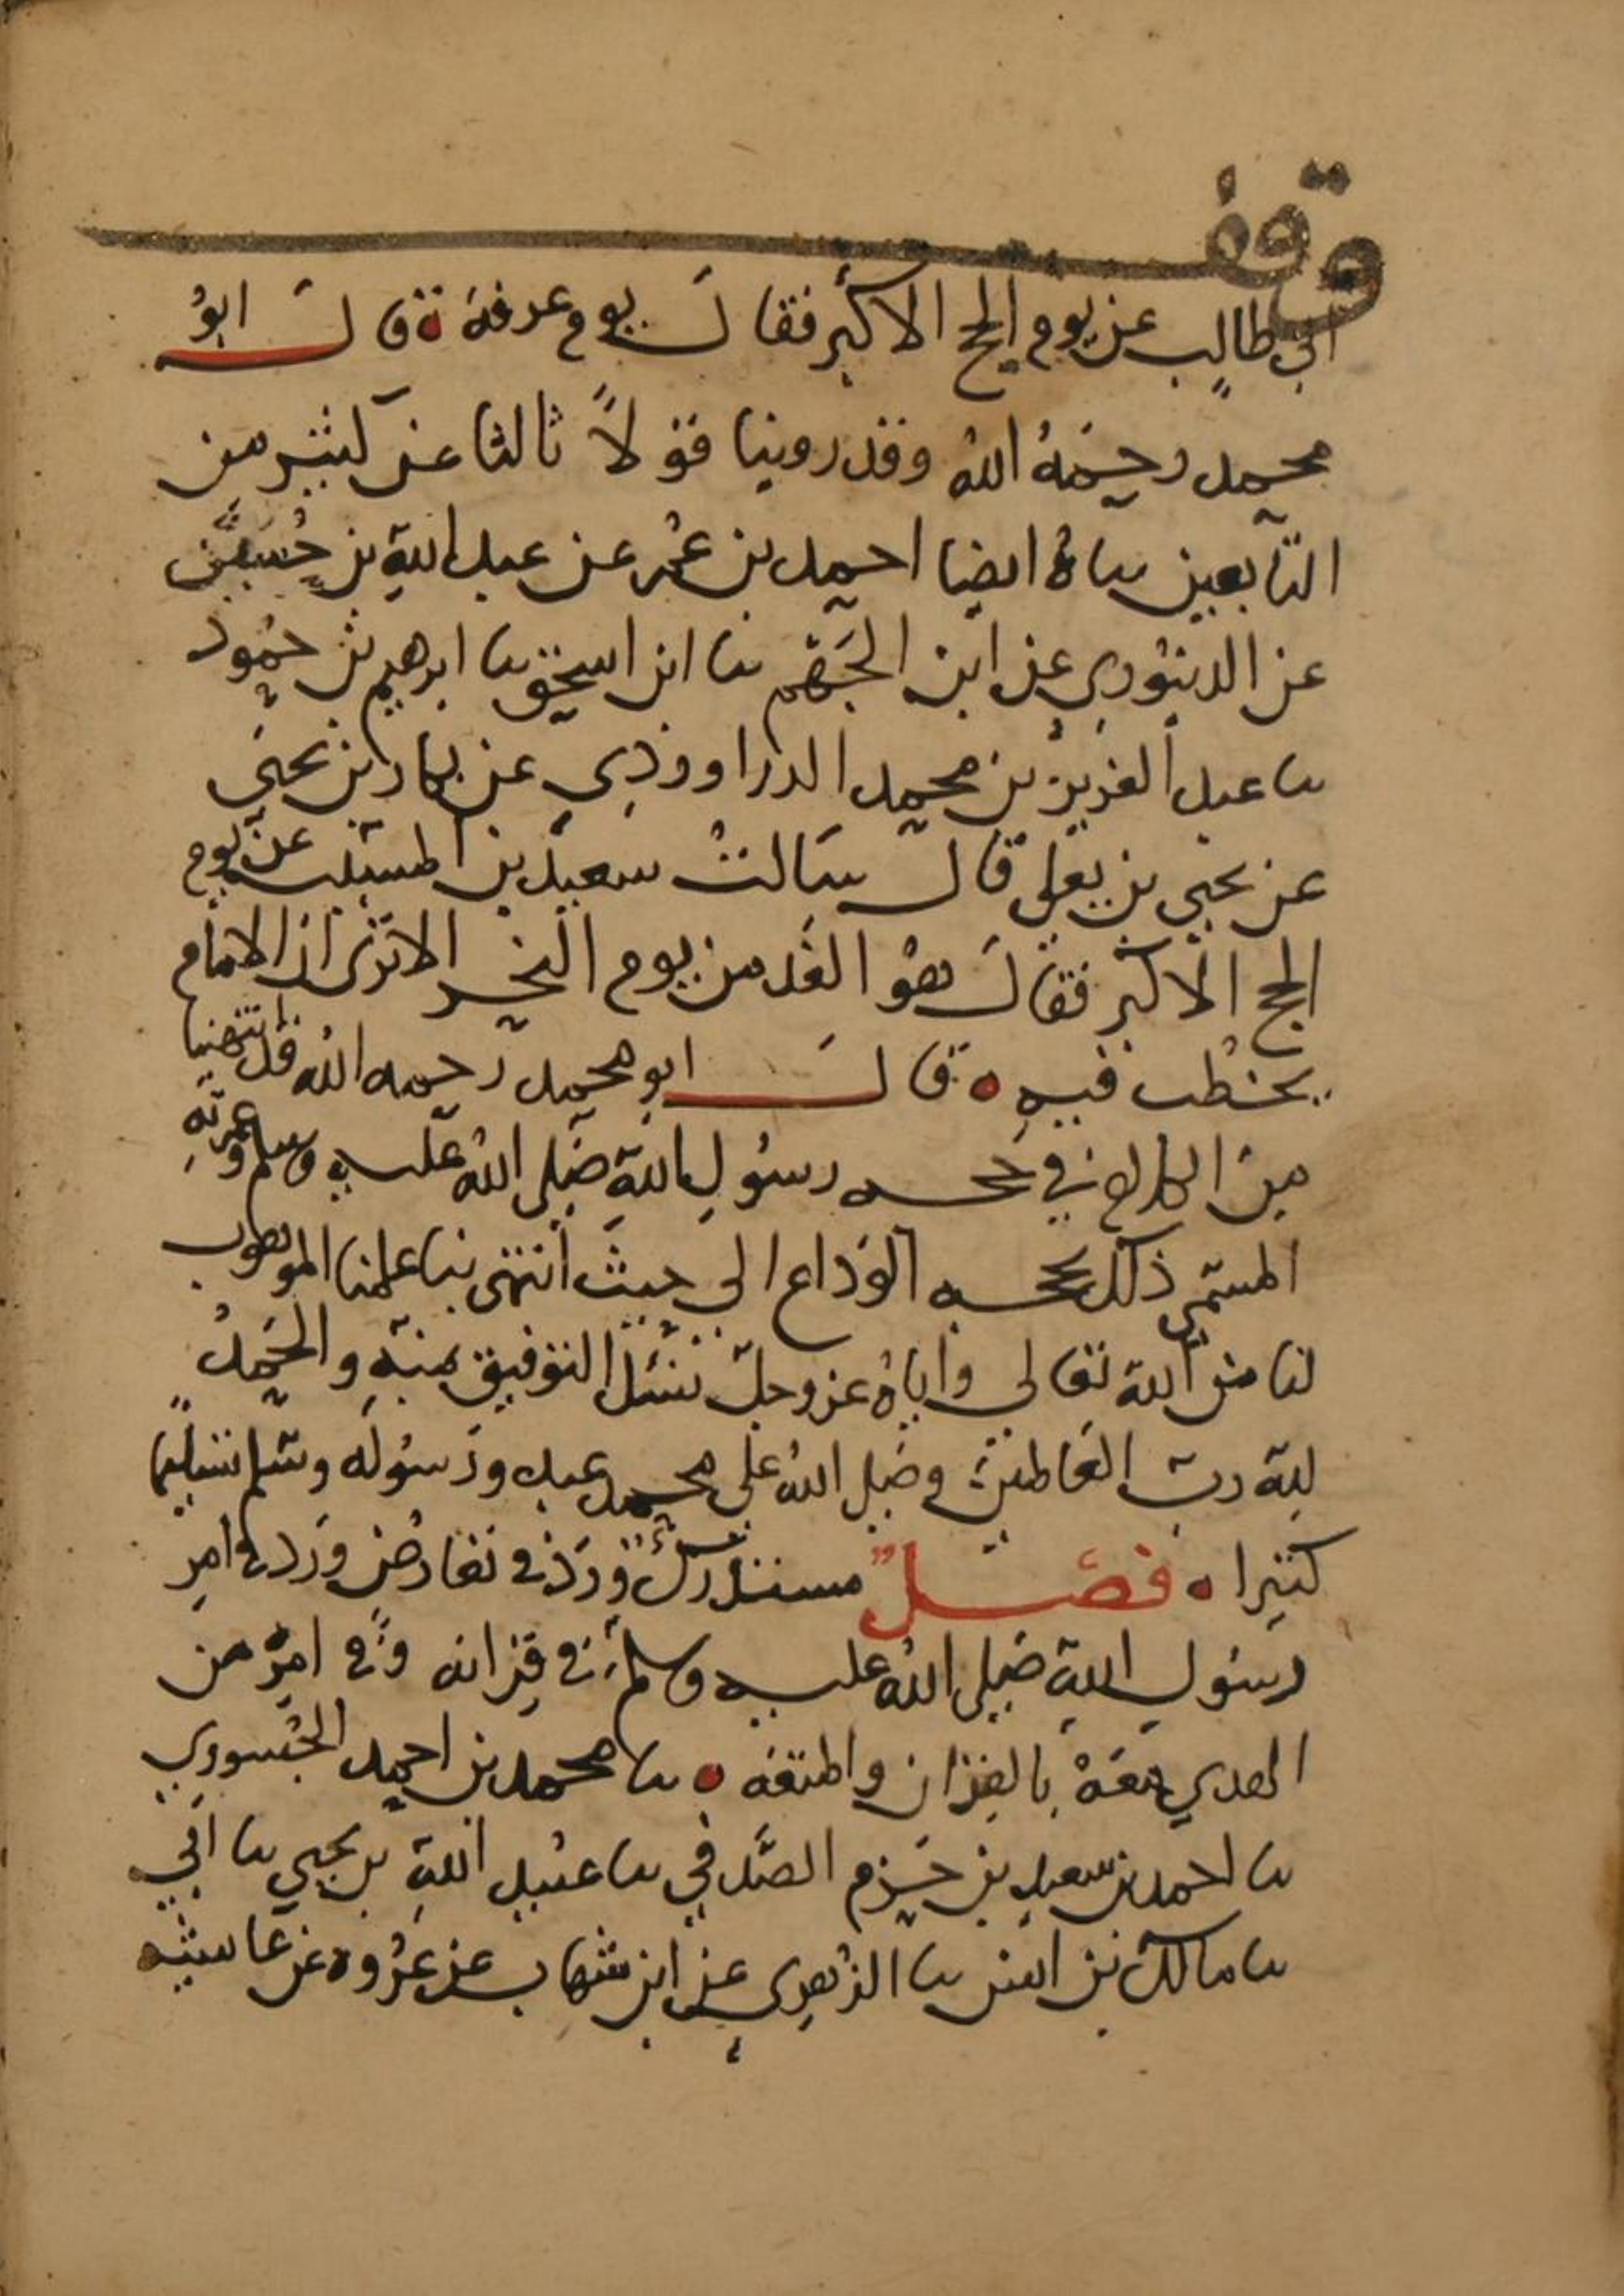 وقف
ابي طالب عن يوم الحج الاكبر فقال يوم عرفة ه قال ابو
محمد رحمه الله وقد روينا قولا ثالثا عن كثير من
التابعين ساه ايضا احمد بن عمر عن عبد الله بن حسين
عن الدينوري عن ابن الجهم سا ابن اسحق سا ابرهيم بن حمود
سا عبد العزيز بن محمد الدراوردي عن بكار بن يحيى
عن يحيى بن يعلى قال سالت سعيد بن المسيب عن يوم
الحج الاكبر فقال هو الغد من يوم النحر الا ترى ان الامام
يخطب فيه ه قال ابو محمد رحمه الله قد انتهينا
من الكلام في حجه رسول الله صلى الله عليه وسلم وعمرته
المسمى ذلك بحجه الوداع الى حيث انتهى بنا علمنا الموهوب
لنا من الله تعالى واياه عز وجل نسئل التوفيق بمنه والحمد
لله رب العالمين وصلى الله على محمد عبده ورسوله وسلم تسليما
كثيرا ه فصل مستدرك ورد في تعارض ورد في امر
رسول الله صلى الله عليه وسلم في قرانه وفي امره من
الهدي معه بالقران والمتعه ه سا محمد بن احمد الجسوري
سا احمد بن سعيد بن حزم الصدفي سا عبيد الله بن يحيى سا ابي
سا مالك بن انس سا الزهري عن ابن شهاب عن عروه عن عايشه